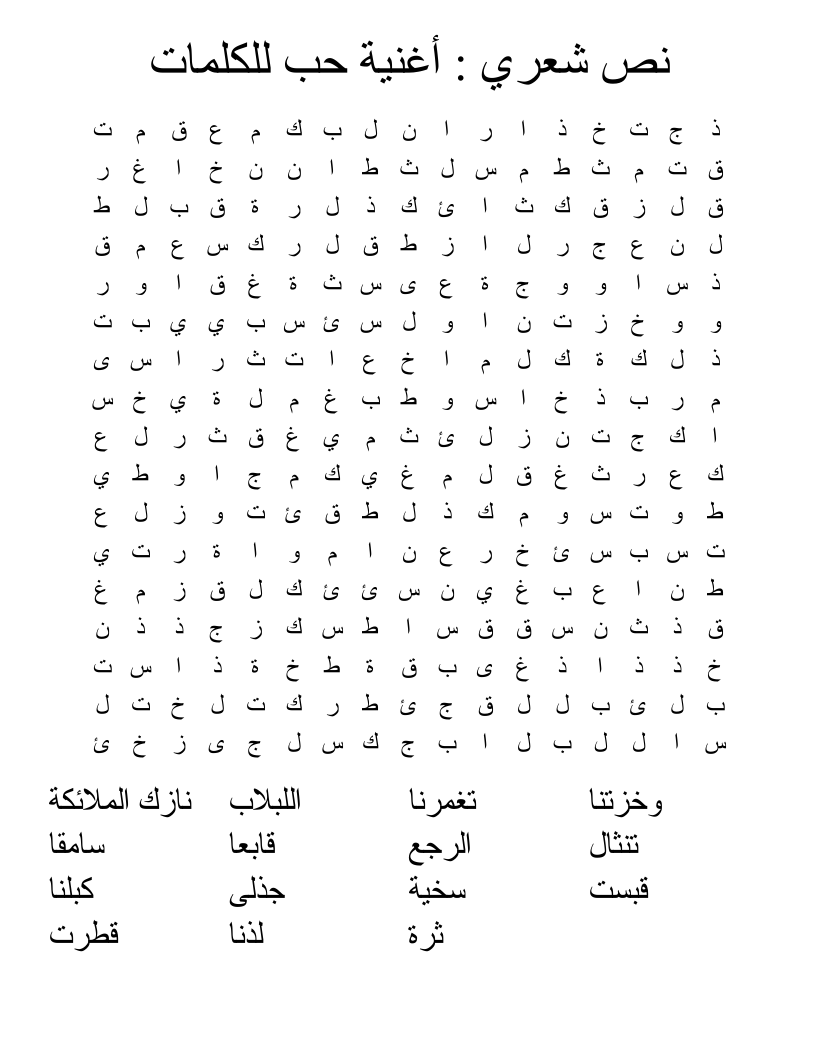 نص شعري : أغنية حب للكلمات
ذ ج ت خ ذ ا ر ا ن ل ب ك م ع ق م ت
ق ت م ث ط م س ل ث ط ا ن ن خ ا غ ر
ق ل ز ق ك ث ا ئ ك ذ ل ر ة ق ب ل ط
ل ن ع ج ر ل ا ز ط ق ل ر ك س ع م ق
ذ س ا و و ج ة ع ى س ث ة غ ق ا و ر
و و خ ز ت ن ا و ل س ئ س ب ي ي ب ت
ذ ل ك ة ك ل م ا خ ع ا ت ث ر ا س ى
م ر ب ذ خ ا س و ط ب غ م ل ة ي خ س
ا ك ج ت ن ز ل ئ ث م ي غ ق ث ر ل ع
ك ع ر ث غ ق ل م غ ي ك م ج ا و ط ي
ط و ت س و م ك ذ ل ط ق ئ ت و ز ل ع
ت س ب س ئ خ ر ع ن ا م و ا ة ر ت ي
ط ن ا ع ب غ ي ن س ئ ئ ك ل ق ز م غ
ق ذ ث ن س ق ق س ا ط س ك ز ج ذ ذ ن
خ ذ ذ ا ذ غ ى ب ق ة ط خ ة ذ ا س ت
ب ل ئ ب ل ل ق ج ئ ط ر ك ت ل خ ت ل
س ا ل ل ب ل ا ب ج ك س ل ج ى ز خ ئ
وخزتنا تغمرنا اللبلاب نازك الملائكة
تنثال الرجع قابعا سامقا
قبست سخية جذلى كبلنا
ثرة لذنا قطرت